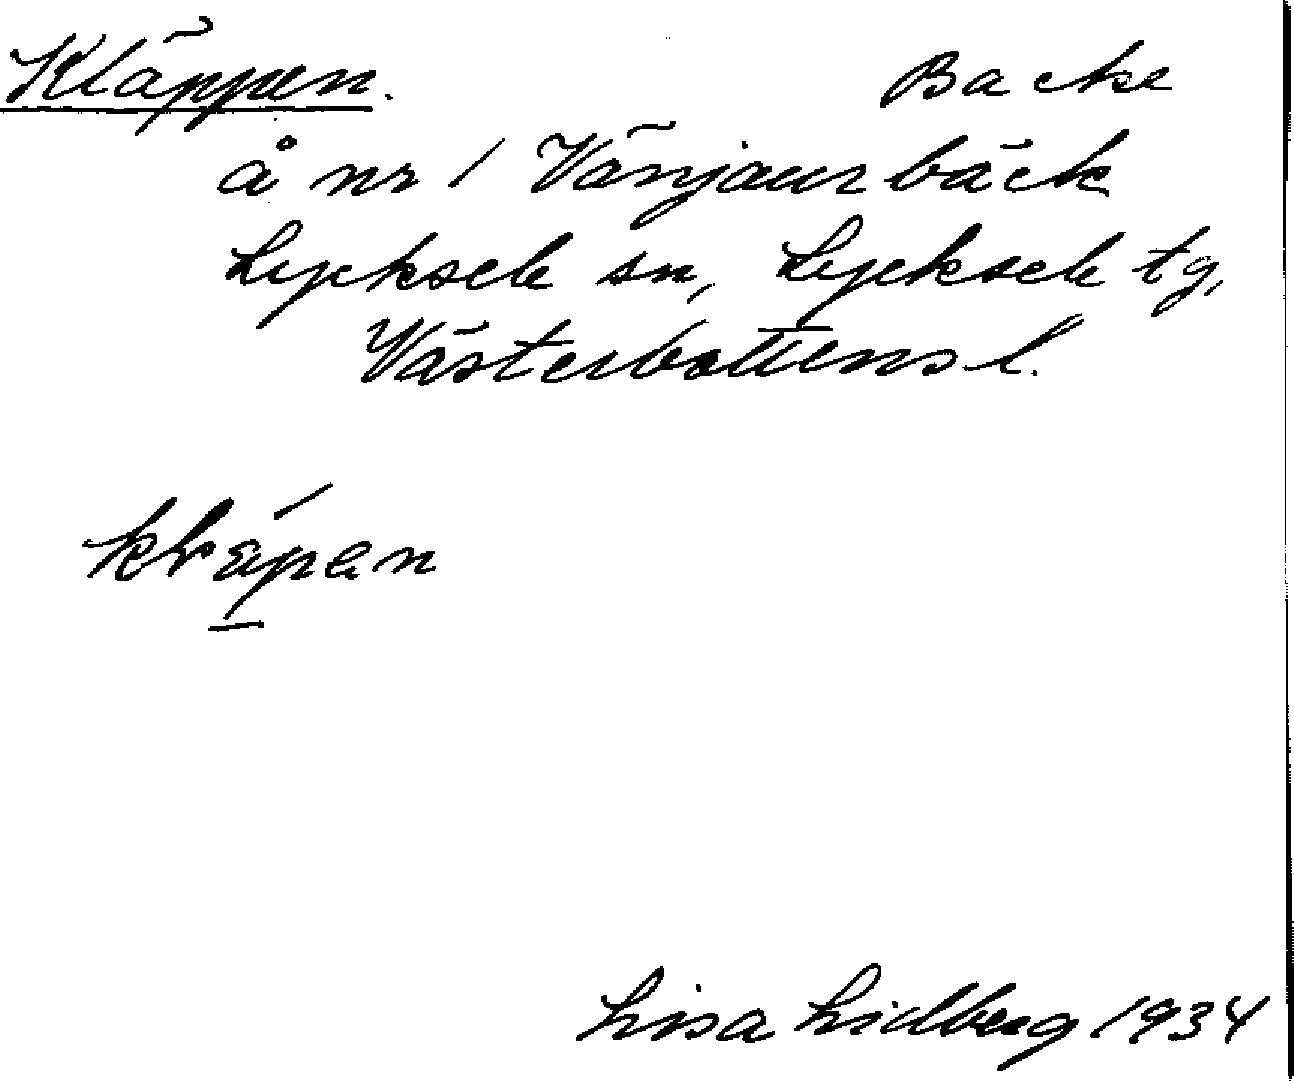 Kläppen. Backe
å nr 1 Vänjaurbäck
Lycksele sn, Lycksele tg,
Västerbottens l.
kläpan
Lisa Lidberg 1934